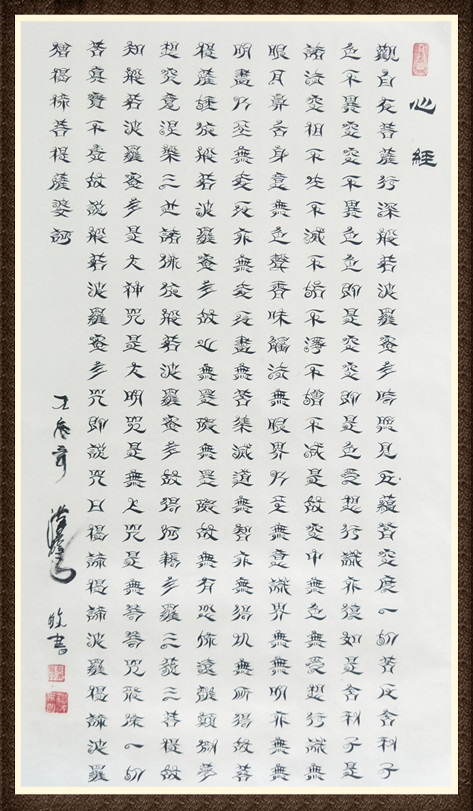 心經
觀自在菩薩行深般若波羅蜜多時照見五蘊皆空度一切苦厄舍利子
色不異空空不異色色即是空空即是色受想行識亦復如是舍利子是
諸法空相不生不滅不垢不淨不增不減是故空中無色無受想行識無
眼耳鼻舌身意無色聲香味觸法無眼界乃至無意識界無無明亦無無
明盡乃至無老死亦無老死盡無苦集滅道無智亦無得以無所得故菩
提薩埵依般若波羅蜜多故心無罣礙無罣礙故無有恐怖遠離顛倒夢
想究竟涅槃三世諸佛依般若波羅蜜多故得阿耨多羅三藐三菩提故
知般若波羅蜜多是大神咒是大明咒是無上咒是無等等咒能除一切
苦真實不虛故說般若波羅蜜多咒即說咒曰揭諦揭諦波羅揭諦波羅
僧揭諦菩提薩婆訶
書